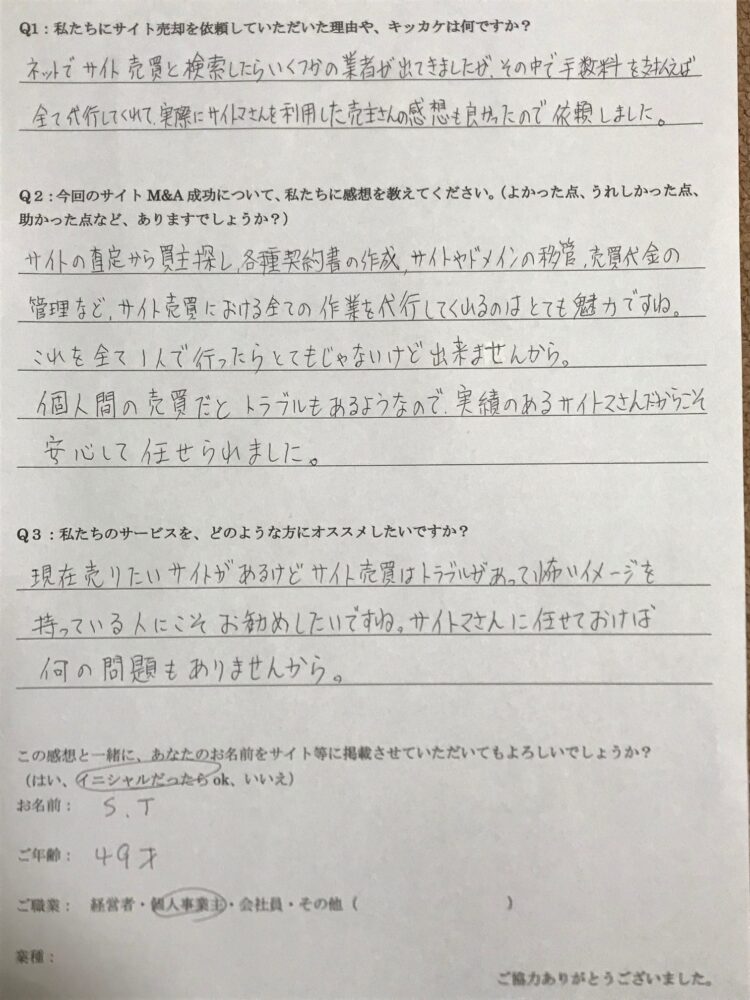 Q1：私たちにサイト売却を依頼していただいた理由や、キッカケは何ですか？
ネットでサイト売買と検索したらいくつかの業者が出てきましたが、その中で手数料を支払えば
全て代行してくれて、実際にサイトマさんを利用した売主さんの感想も良かったので依頼しました。
Q2：今回のサイトM&A成功について、私たちに感想を教えてください。（よかった点、うれしかった点、
助かった点など、ありますでしょうか？）
サイトの査定から買主探し、各種契約書の作成、サイトやドメインの移管、売買代金の
管理など、サイト売買における全ての作業を代行してくれるのはとても魅力ですね。
これを全て1人で行ったらとてもじゃないけど出来ませんから。
個人間の売買だとトラブルもあるようなので、実績のあるサイトマさんだからこそ
安心して任せられました。
Q3：私たちのサービスを、どのような方にオススメしたいですか？
現在売りたいサイトがあるけどサイト売買はトラブルがあって怖いイメージを
持っている人にこそお勧めしたいですね。サイトマさんに任せておけば
何の問題もありませんから。
この感想と一緒に、あなたのお名前をサイト等に掲載させていただいてもよろしいでしょうか？
（はい、イニシャルだったらok、いいえ）
お名前： S.T
ご年齢： 49才
ご職業： 経営者・個人事業主・会社員・その他（ ）
業種：
ご協力ありがとうございました。